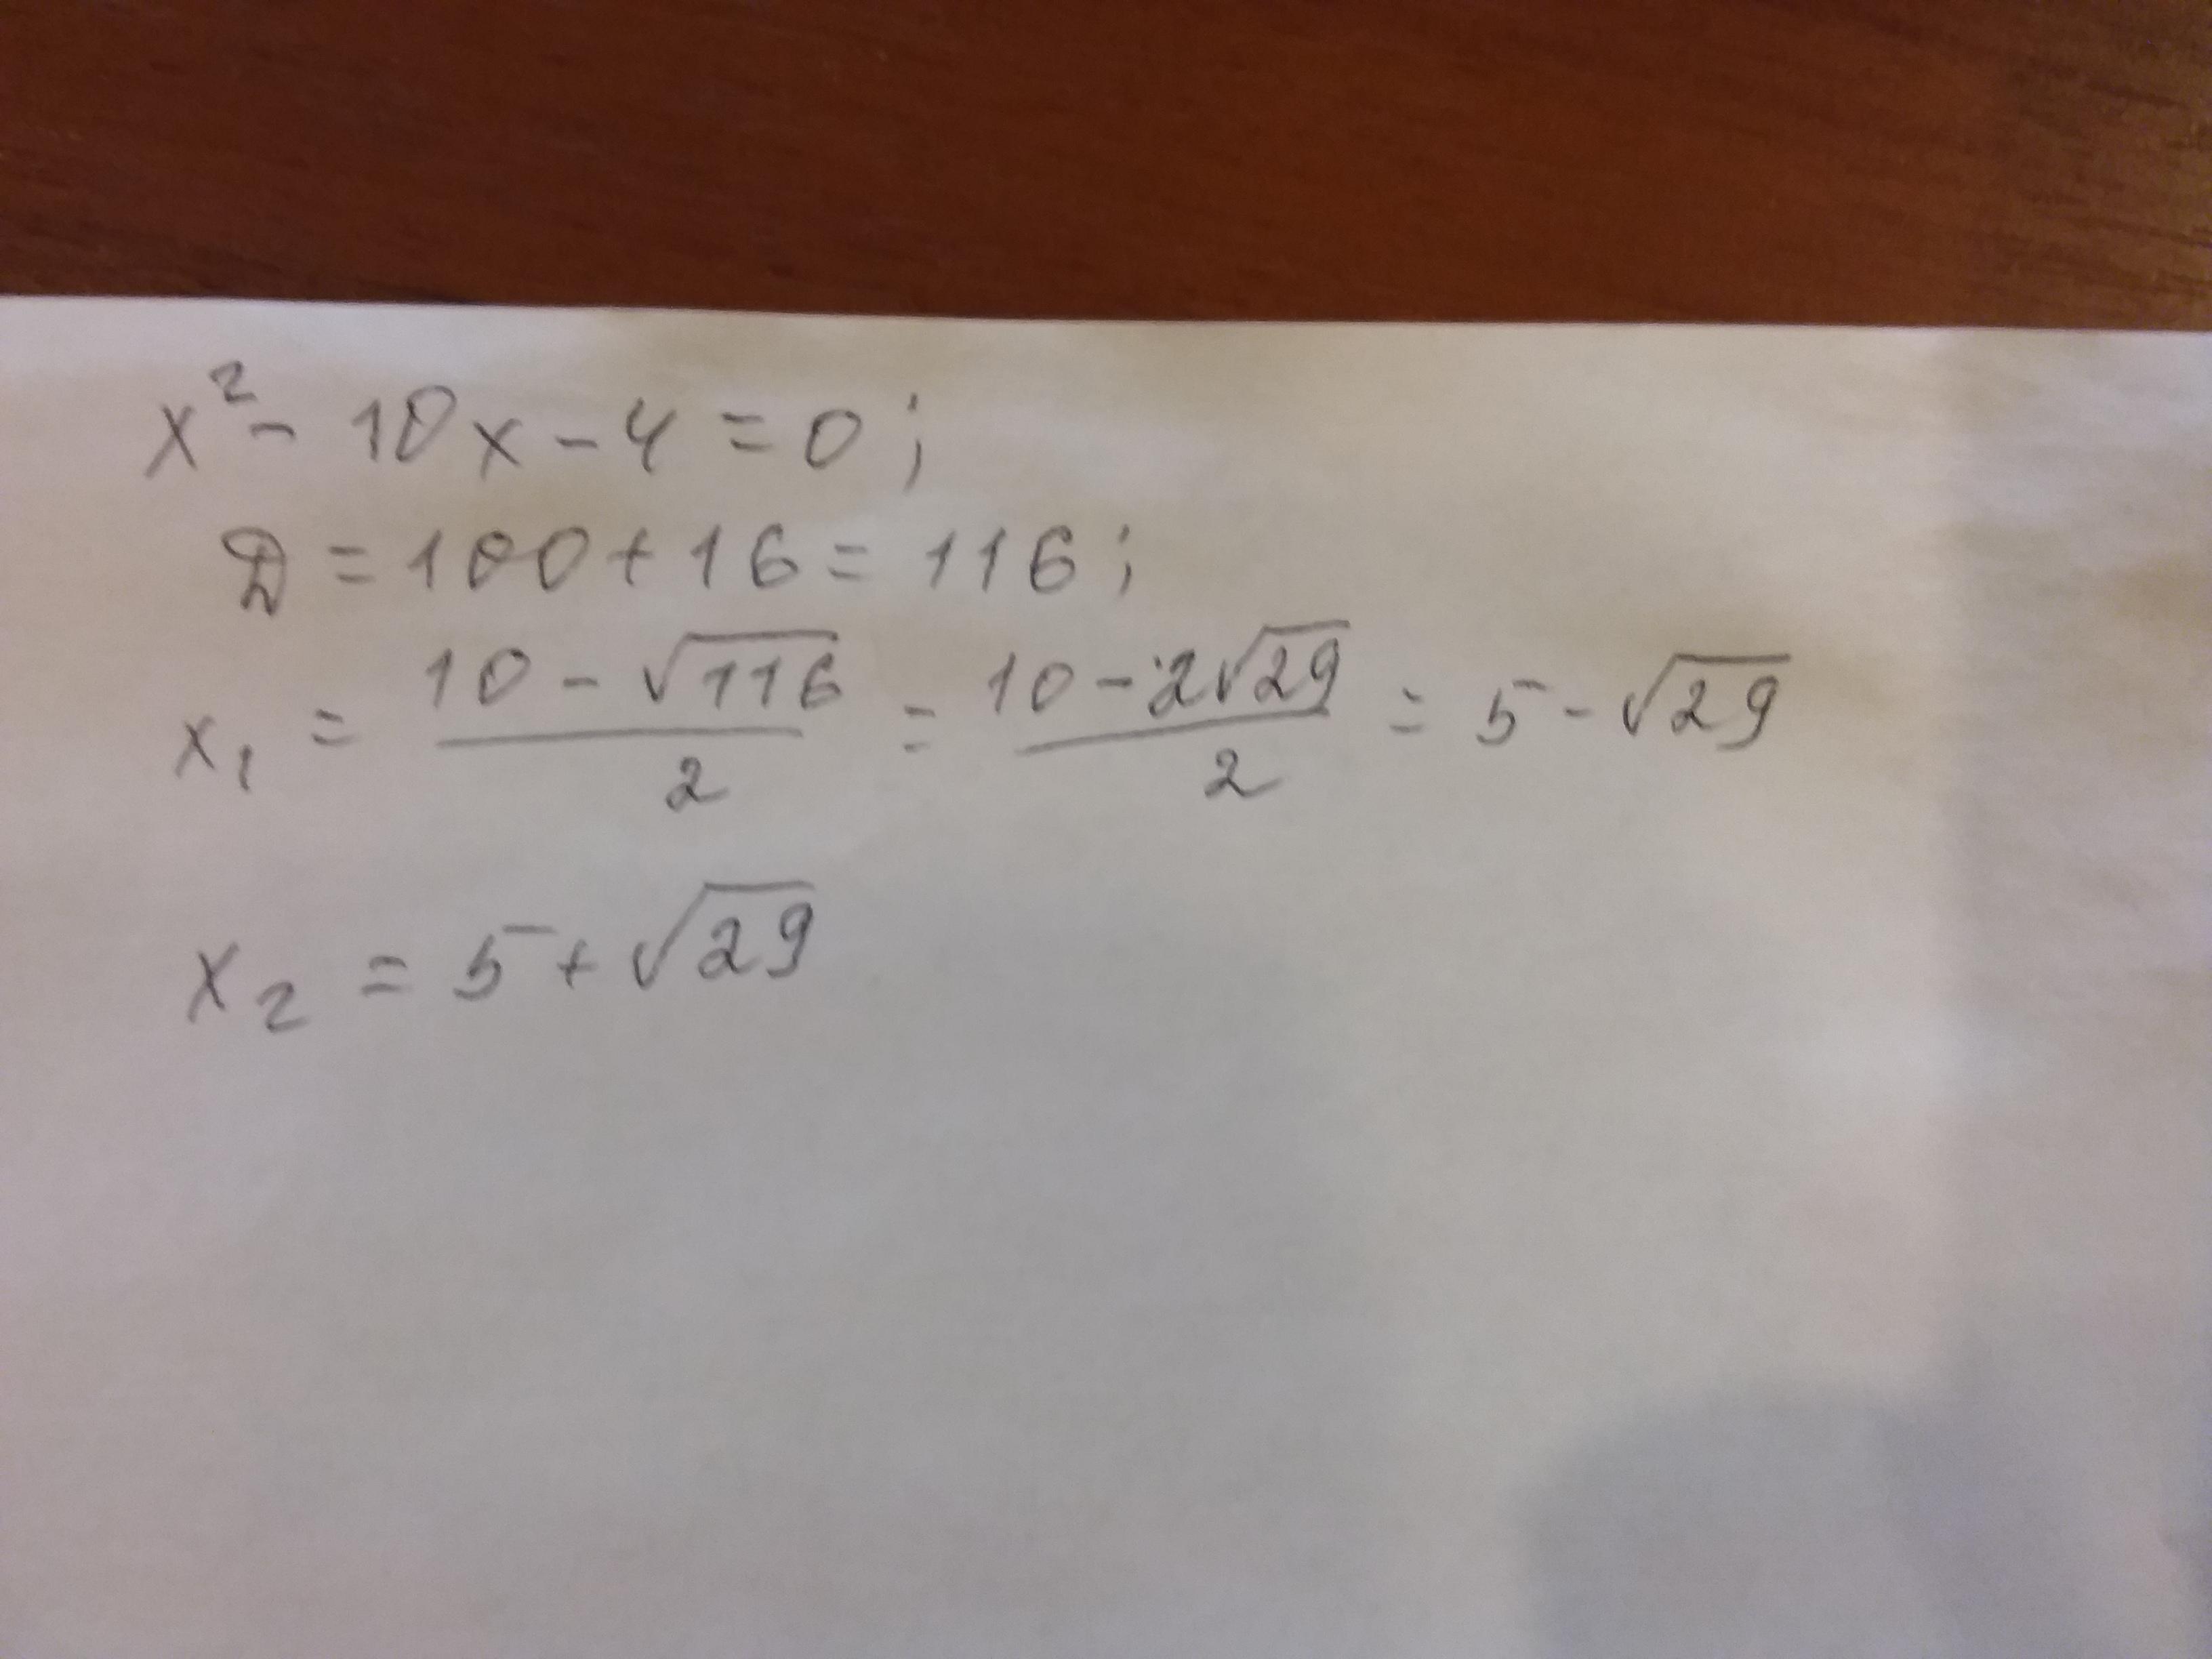 x² - 10x - 4 = 0;
D = 100 + 16 = 116;
x₁ = (10 - √116)/2 = (10 - 2√29)/2 = 5 - √29
x₂ = 5 + √29